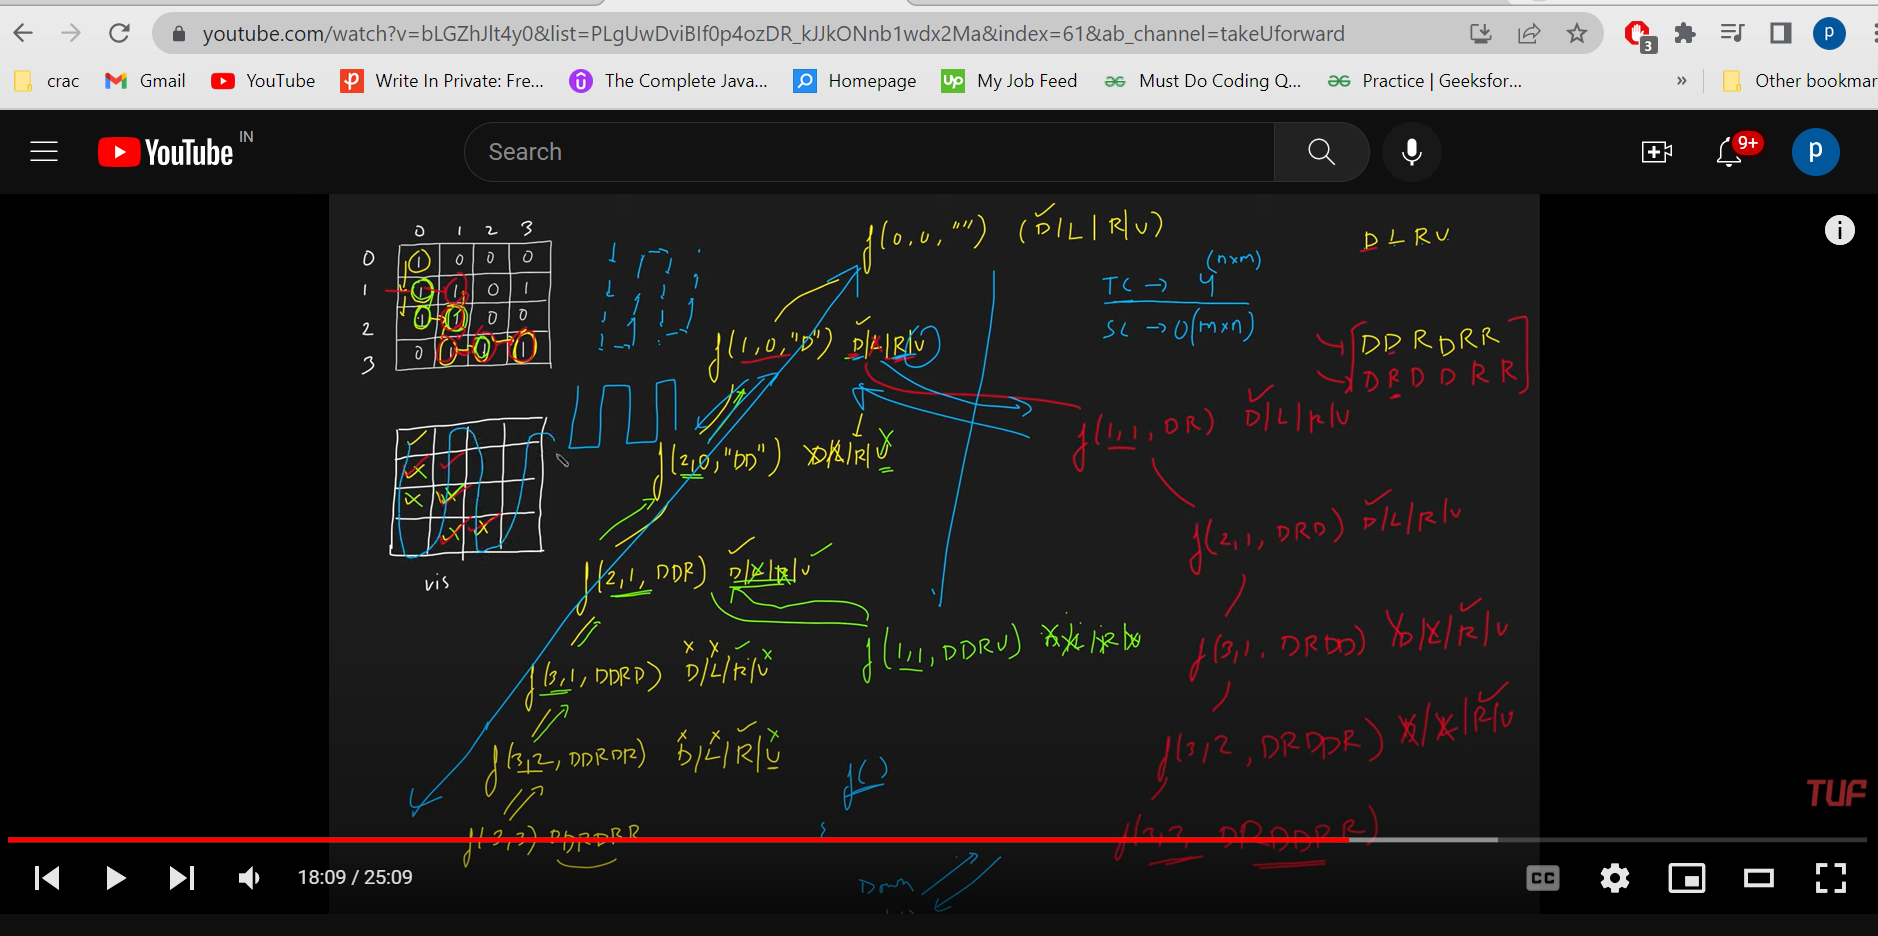 youtube.com/watch?v=bLGZhJlt4y0&list=PLgUwDviBIf0p4ozDR_kJJkONnb1wdx2Ma&index=61&ab_channel=takeUforward
3
p
crac
Gmail
YouTube
Write In Private: Fre...
The Complete Java...
Homepage
up My Job Feed
Must Do Coding Q...
Practice | Geeksfor...
»
Other bookmar
YouTube IN
Search
9+
p
0 1 2 3
0 1 0 0 0
1 1 1 0 1
2 1 1 0 0
3 0 1 1 1
vis
f(0,0,"") (D/L|R|U)
D L R U
TC → 4^(n×m)
SC → O(m×n)
f(1,0,"D") D/L|R|U
DDRDRR
DRDDRR
f(1,1,DR) D/L/R/U
f(2,0,"DD") D/L/R|U
f(2,1,DRD) D/L/R/U
f(2,1,DDR) D/L/R/U
f(1,1,DDRU) D/L/R/U
f(3,1,DRDD) D/L/R/U
f(3,1,DDRD) D/L/R/U
f(3,2,DRDDR) D/L/R/U
f(3,2,DDRDR) D/L/R/U
f()
TUF
f(3,3) DDRDRR
f(3,3 DRDDRR)
Down
18:09 / 25:09
CC